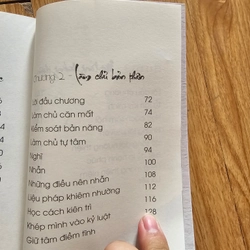 Chương 2 - Làm chủ bản thân
Lời đầu chương 72
Làm chủ căn mắt 74
Kiểm soát bản năng 82
Làm chủ tự tâm 90
Nghĩ 94
Nhẫn 100
Những điều nên nhẫn 108
Liệu pháp khiêm nhường 112
Học cách kiên trì 116
Khép mình vào kỷ luật 128
Giữ tâm điềm tĩnh